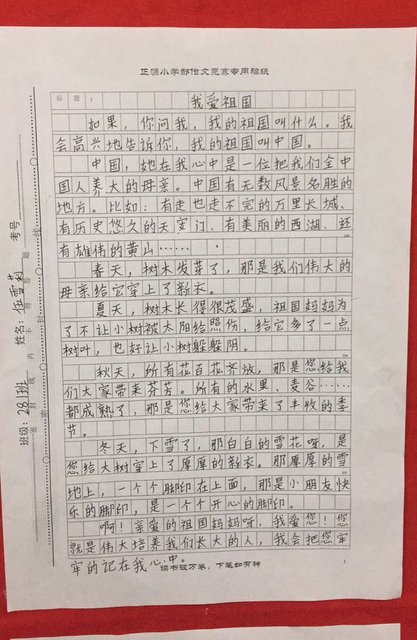 正源小学部作文竞赛专用稿纸
标题: 我爱祖国
如果,你问我,我的祖国叫什么。我
会高兴地告诉你,我的祖国叫中国。
中国,她在我心中是一位把我们全中
国人养大的母亲。中国有无数风景名胜的
地方。比如:有走也走不完的万里长城、
有历史悠久的天安门、有美丽的西湖、还
有雄伟的黄山……
春天,树木发芽了,那是我们伟大的
母亲给它穿上了新衣。
夏天,树木长得很茂盛,祖国妈妈为
了不让小树被太阳给照伤,给它多了一点
树叶,也好让小树躲躲阴。
秋天,所有花百花齐放,那是您给我
们大家带来芬芳。所有的水果、麦谷……
都成熟了,那是您给大家带来了丰收的季
节。
冬天,下雪了,那白白的雪花呀,是
您给大树穿上了厚厚的新衣。那厚厚的雪
地上,一个个脚印在上面,那是小朋友快
乐的脚印,是一个个开心的脚印。
啊!亲爱的祖国妈妈呀,我爱您!您
就是伟大培养我们长大的人,我会把您牢
牢的记在我心中。
读书破万卷,下笔如有神
班级:281班
姓名:
考号